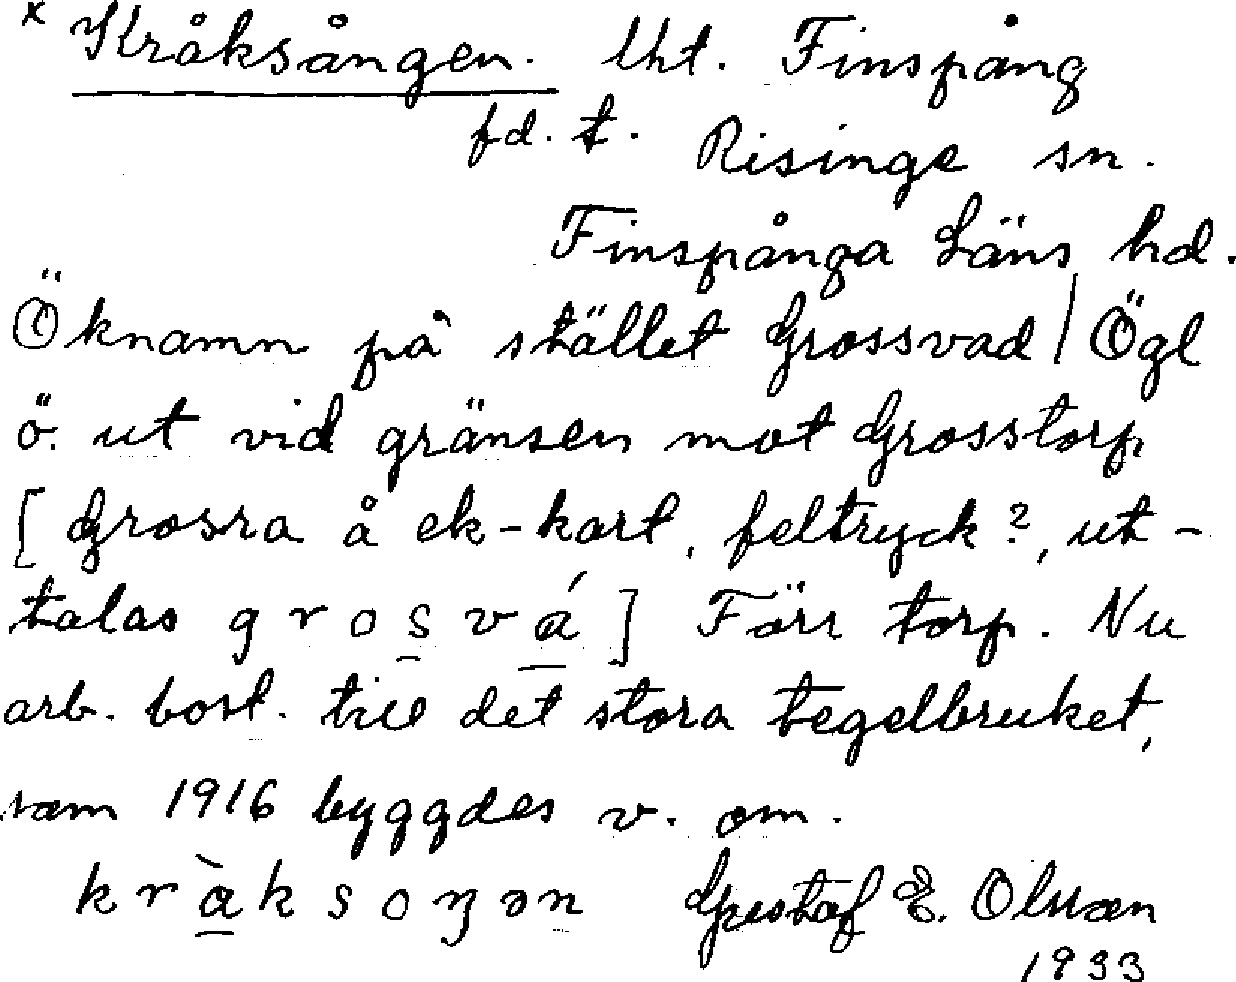 x Kråksången. Uht. Finspång
fd. t. Risinge sn.
Finspånga Läns hd.
Öknamn på stället Grossvad / Ögl
ö. ut vid gränsen mot Grosstorp
[ Grosra å ek-kart, feltryck?, ut-
talas g r o s v á ] Förr torp. Nu
arb. bost. till det stora tegelbruket,
som 1916 byggdes v. om.
k r à k s o ŋ ə n Gustaf E. Olsson
1933